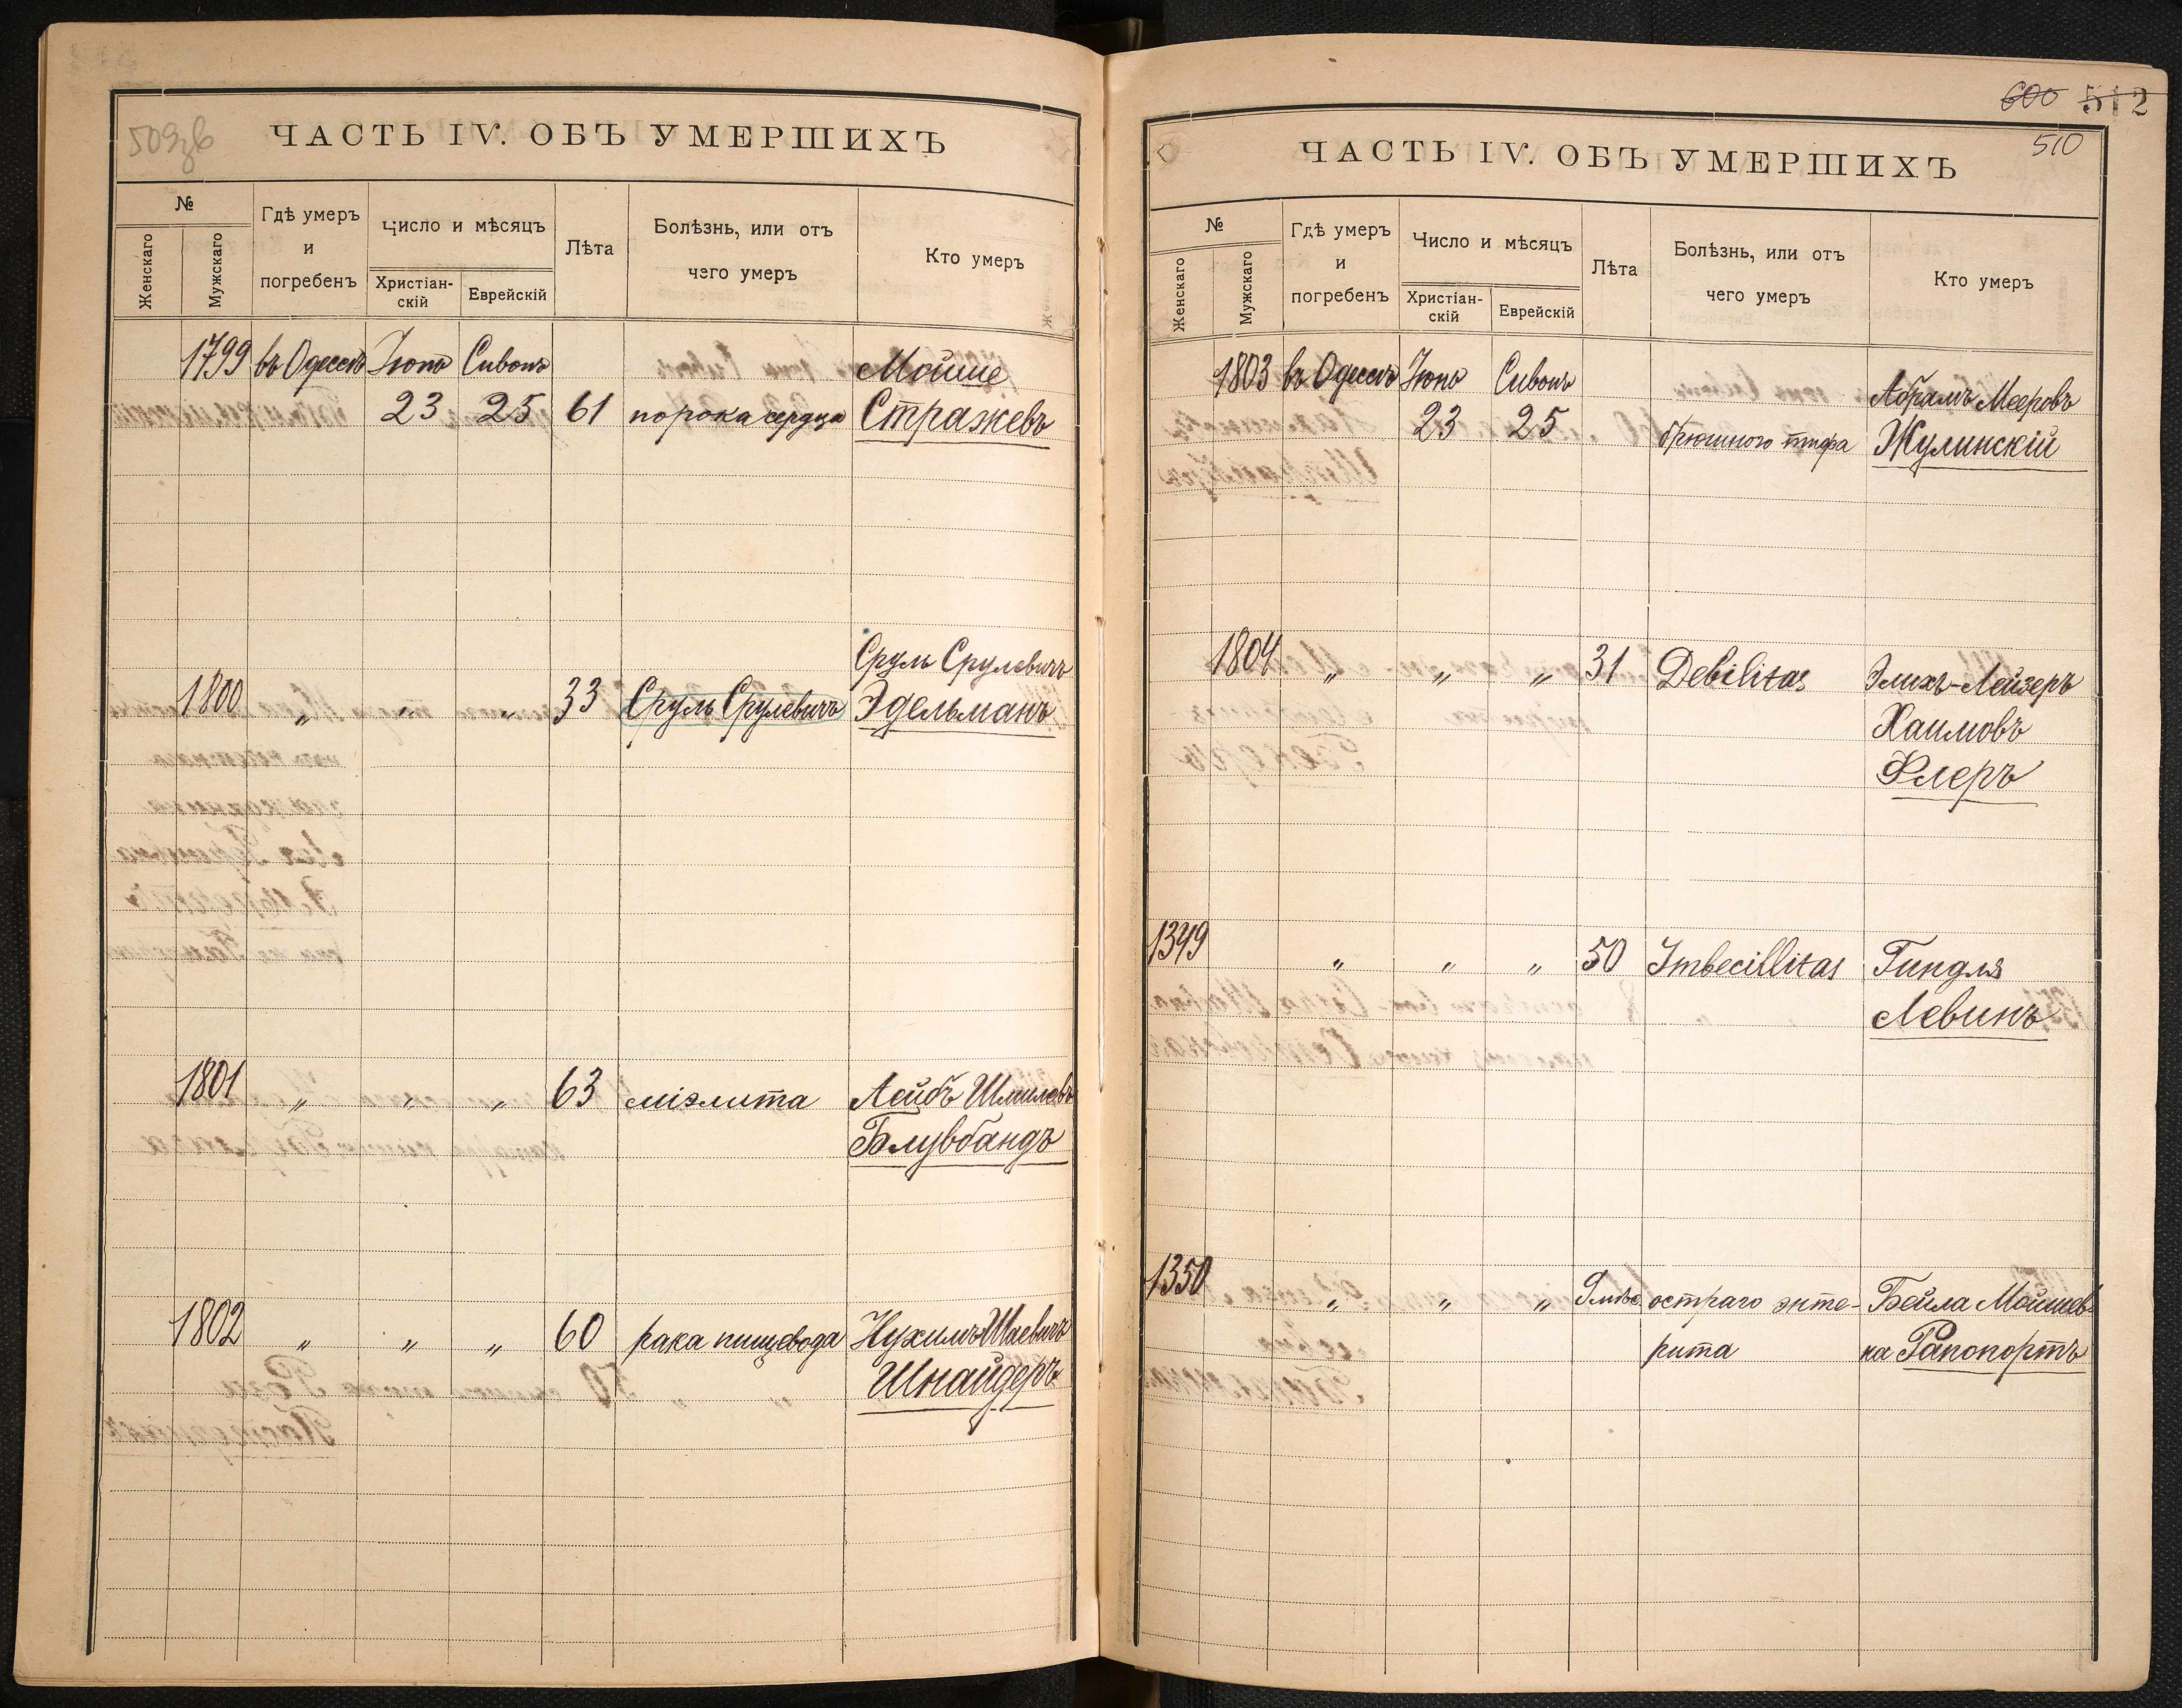 ЧАСТЬ IV. ОБЪ УМЕРШИХЪ
№
Женскаго
Мужскаго
Гдѣ умеръ
и
погребенъ
Число и мѣсяцъ
Христіан-
скій
Еврейскій
Лѣта
Болѣзнь, или отъ
чего умеръ
Кто умеръ
1799 въ Одессѣ Іюнь Сивонъ Мойше
23 25 61 порока сердца Стражевъ
Сруль Срулевичъ
1800 „ „ „ 33 Сруль Срулевичъ Эдельманъ
1801 „ „ „ 63 міэлита Лейбъ Шмилевъ
Блувбандъ
1802 „ „ „ 60 рака пищевода Нухимъ Шаевичъ
Шнайдеръ
600 512
510
ЧАСТЬ IV. ОБЪ УМЕРШИХЪ
№
Женскаго
Мужскаго
Гдѣ умеръ
и
погребенъ
Число и мѣсяцъ
Христіан-
скій
Еврейскій
Лѣта
Болѣзнь, или отъ
чего умеръ
Кто умеръ
1803 въ Одессѣ Іюнь Сивонъ Абрамъ Мееровъ
23 25 брюшного тифа Жулинскій
1804 „ „ „ 31 Debilitas Элихъ-Лейзеръ
Хаимовъ
Флеръ
1349 „ „ „ 50 Imbecillitas Гиндля
Левинъ
1350 „ „ „ остраго энте- Бейла Мойшев-
рита на Рапопортъ